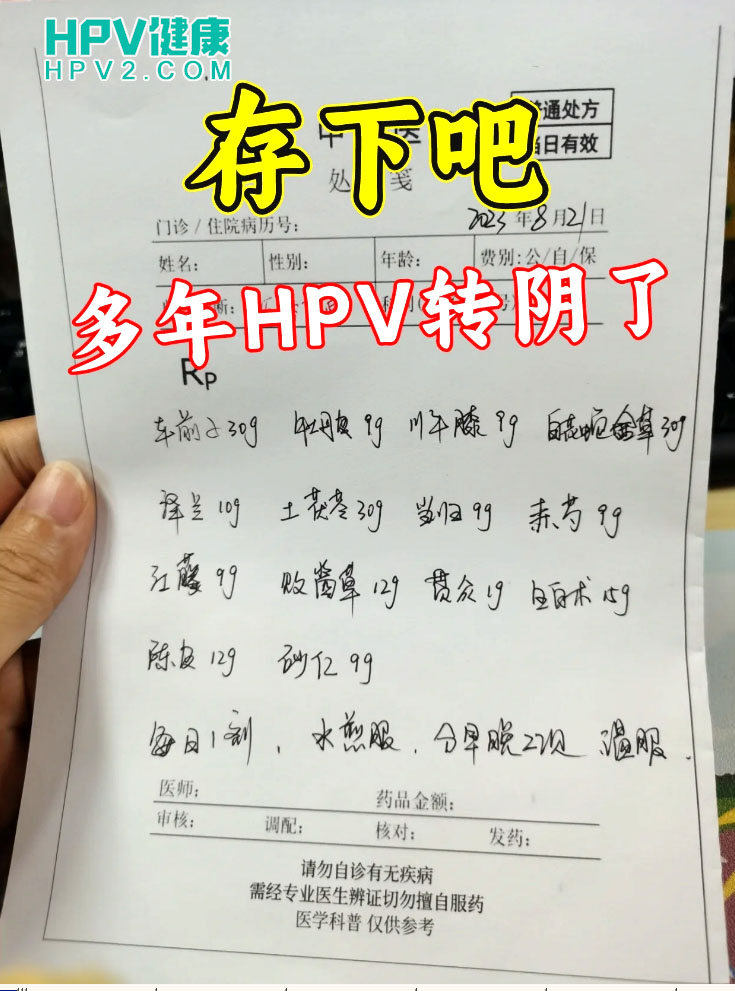 HPV健康
HPV2.COM
存下吧
普通处方
当日有效
处 笺
门诊/住院病历号: 2023年8月21日
姓名: 性别: 年龄: 费别:公/自/保
多年HPV转阴了
Rp
车前子30g 牡丹皮9g 川牛膝9g 白花蛇舌草30g
泽兰10g 土茯苓30g 当归9g 赤芍9g
红藤9g 败酱草12g 贯众1g 生白术15g
陈皮12g 砂仁9g
每日1剂，水煎服，分早晚2次 温服.
医师: 药品金额:
审核: 调配: 核对: 发药:
请勿自诊有无疾病
需经专业医生辨证切勿擅自服药
医学科普 仅供参考